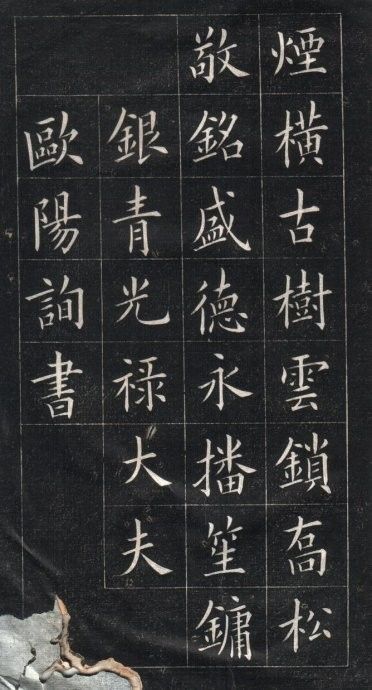 煙橫古樹雲鎖喬松
敬銘盛德永播笙鏞
銀青光祿大夫
歐陽詢書